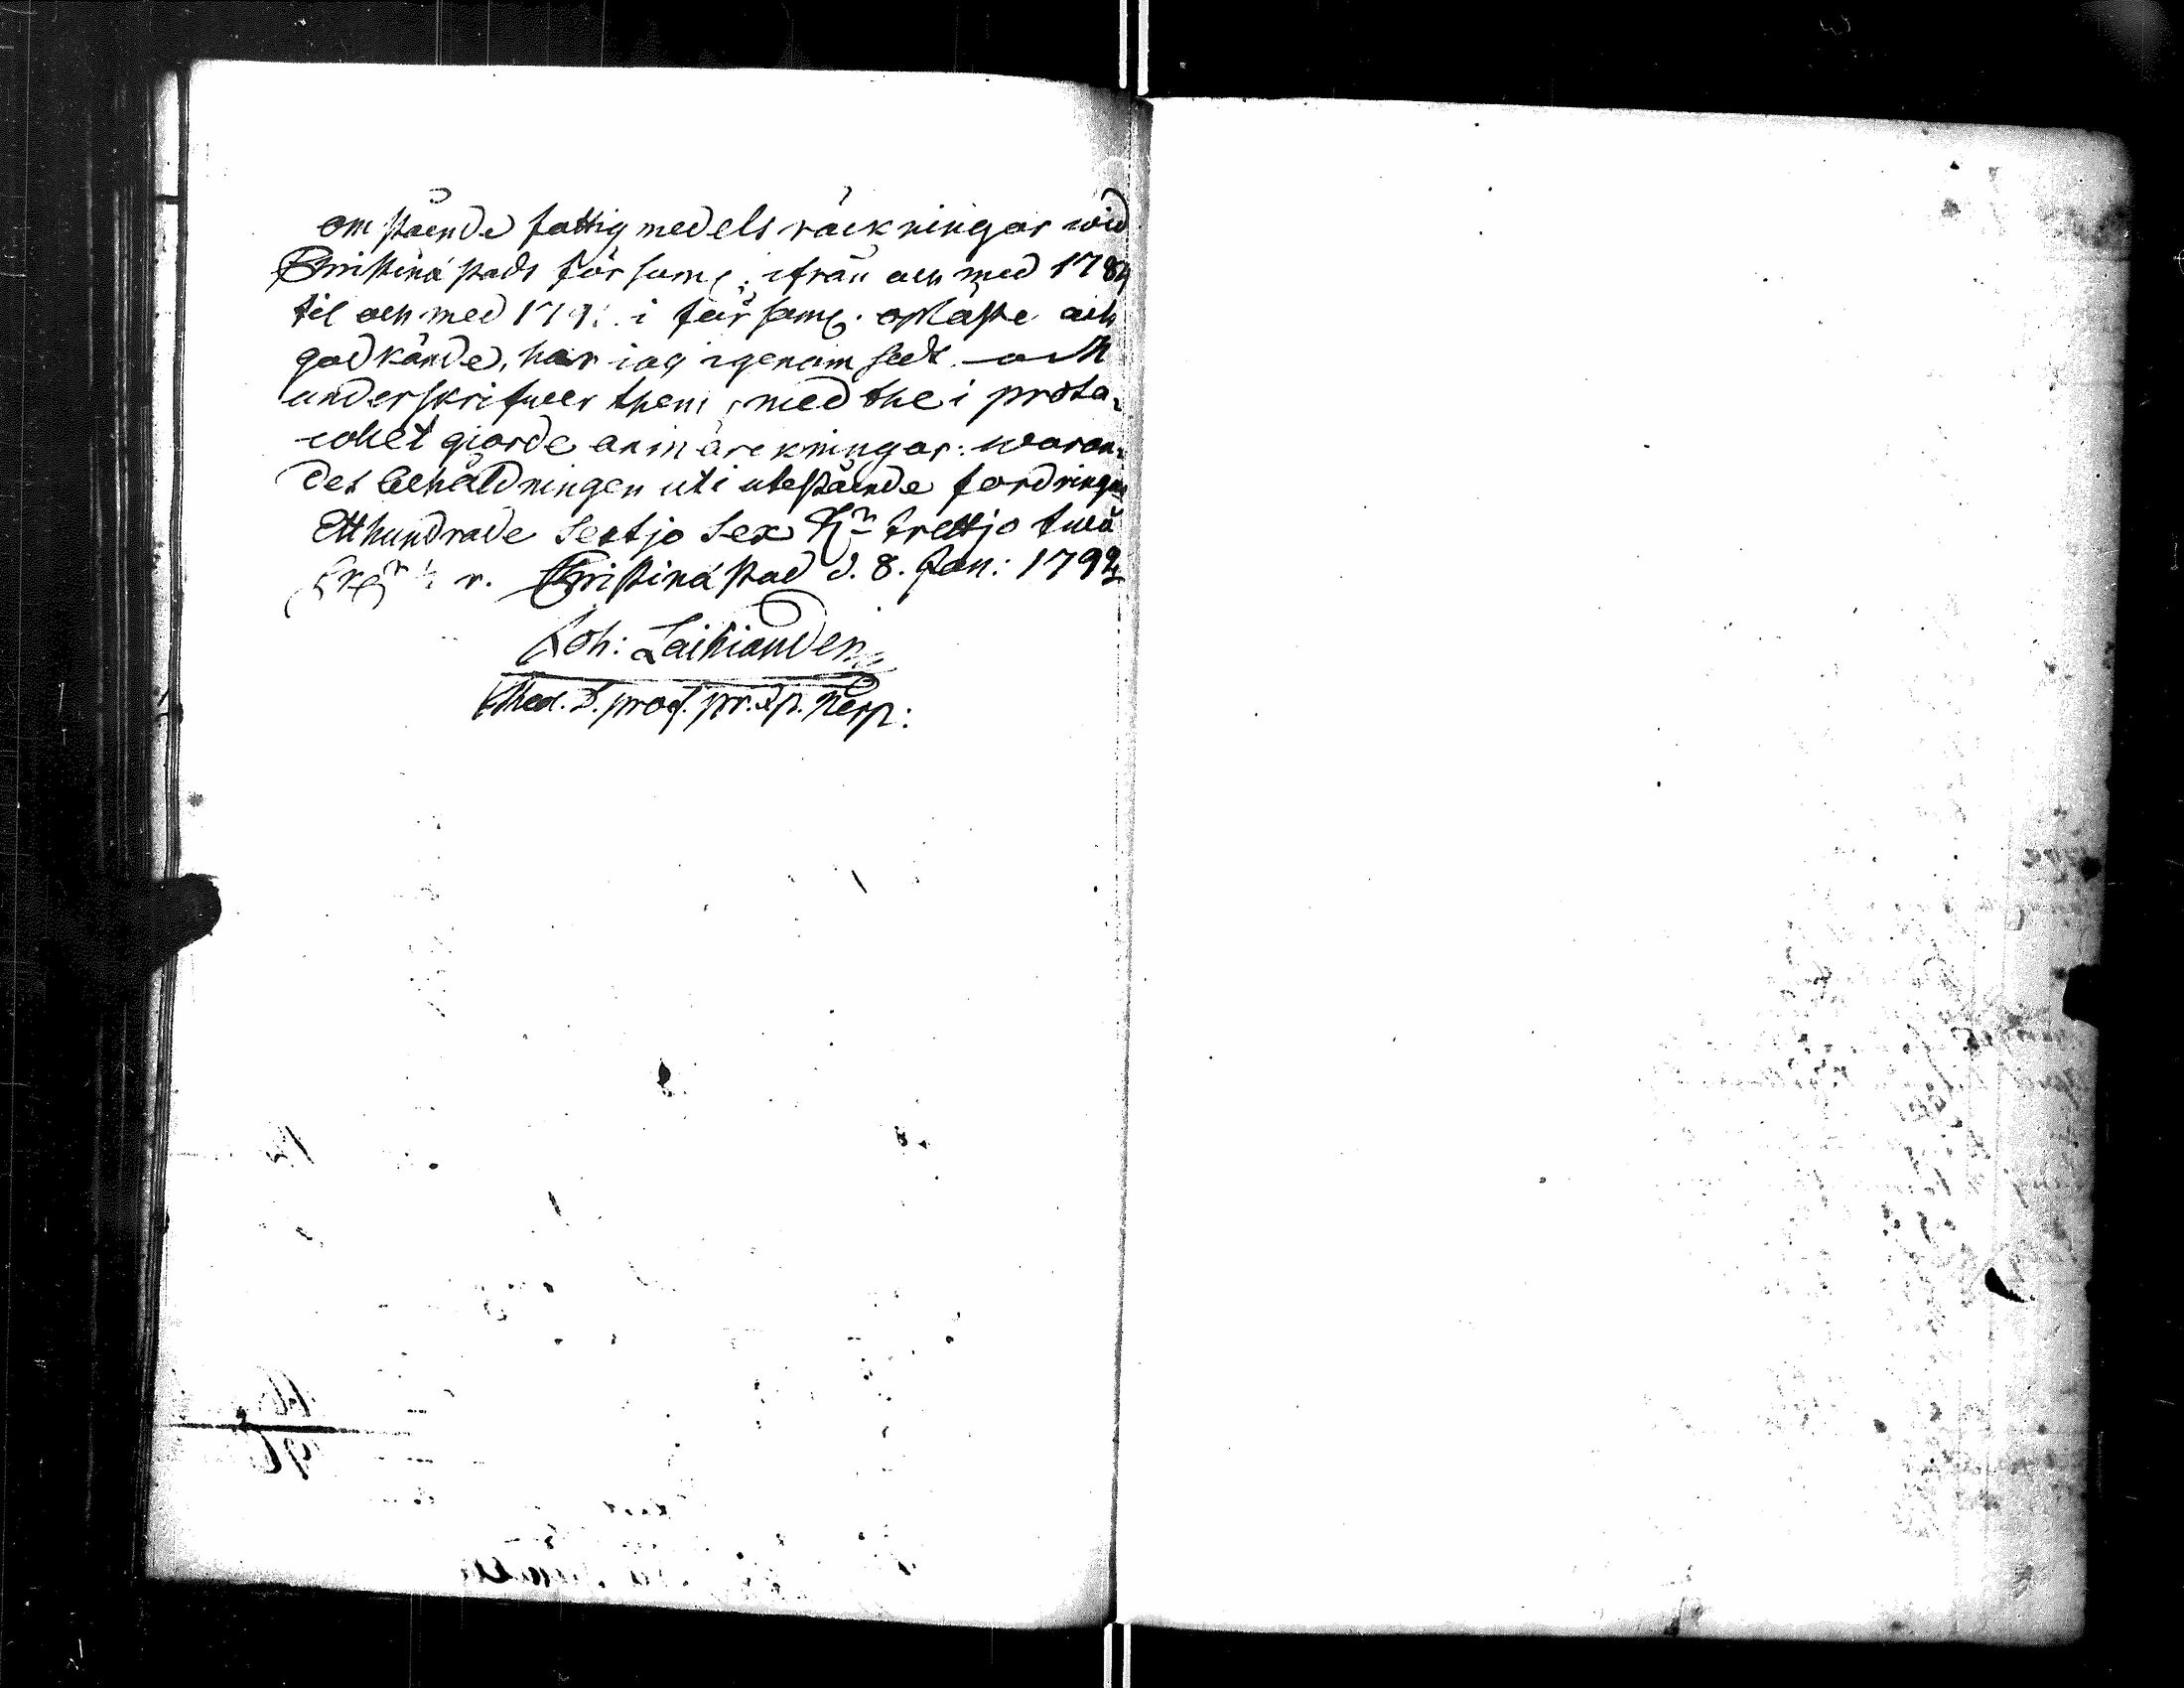 omstående fattigmedels räckningar wid
Christinæstads församl: ifrån och med 1784
til och med 179 i församl. opläste och
godkände, har iag igenom sedt och
underskrifwer them, med the i proto-
collet giorde anmärckningar: waran-
des behåldningen uti utestående fordringar
Etthundrade sextjo sex Rr trettjo twå
sk r. Christinæstad d. 8. Jan: 1794
Joh: Laihiander
Med. D. prof. pr. & p. Nerp: